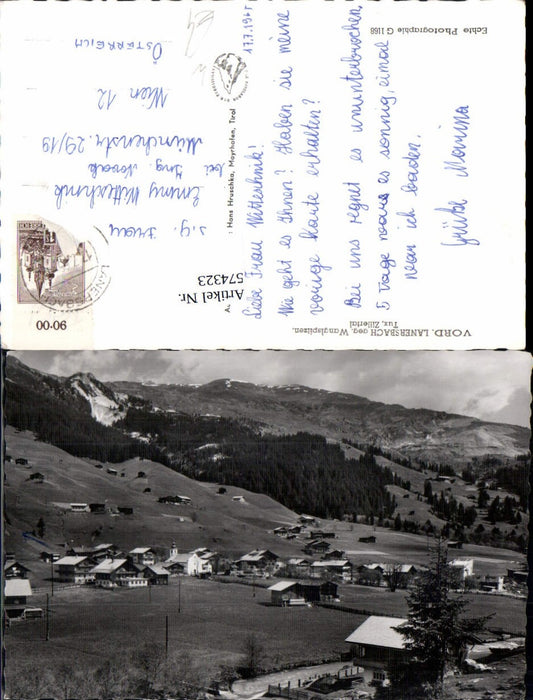 17.7.1965
Liebe Frau Witterhnk!
Wie geht es Ihnen? Haben sie meine
vorige Karte erhalten?
Bei uns regnet es ununterbrochen,
5 Tage war es sonnig, einmal
war ich baden.
Grüße Monina
S.g. Frau
Emmy Witterhnk
bei Ing. Novak
Münchenstr. 29/19
Wien 12
ÖSTERREICH
Echte Photographie G 1168
: Hans Hruschka, Mayrhofen, Tirol
VORD. LANERSBACH geg. Wanglspitzen,
Tux, Zillertal
LANERSBACH
Artikel Nr.
574323
90-00